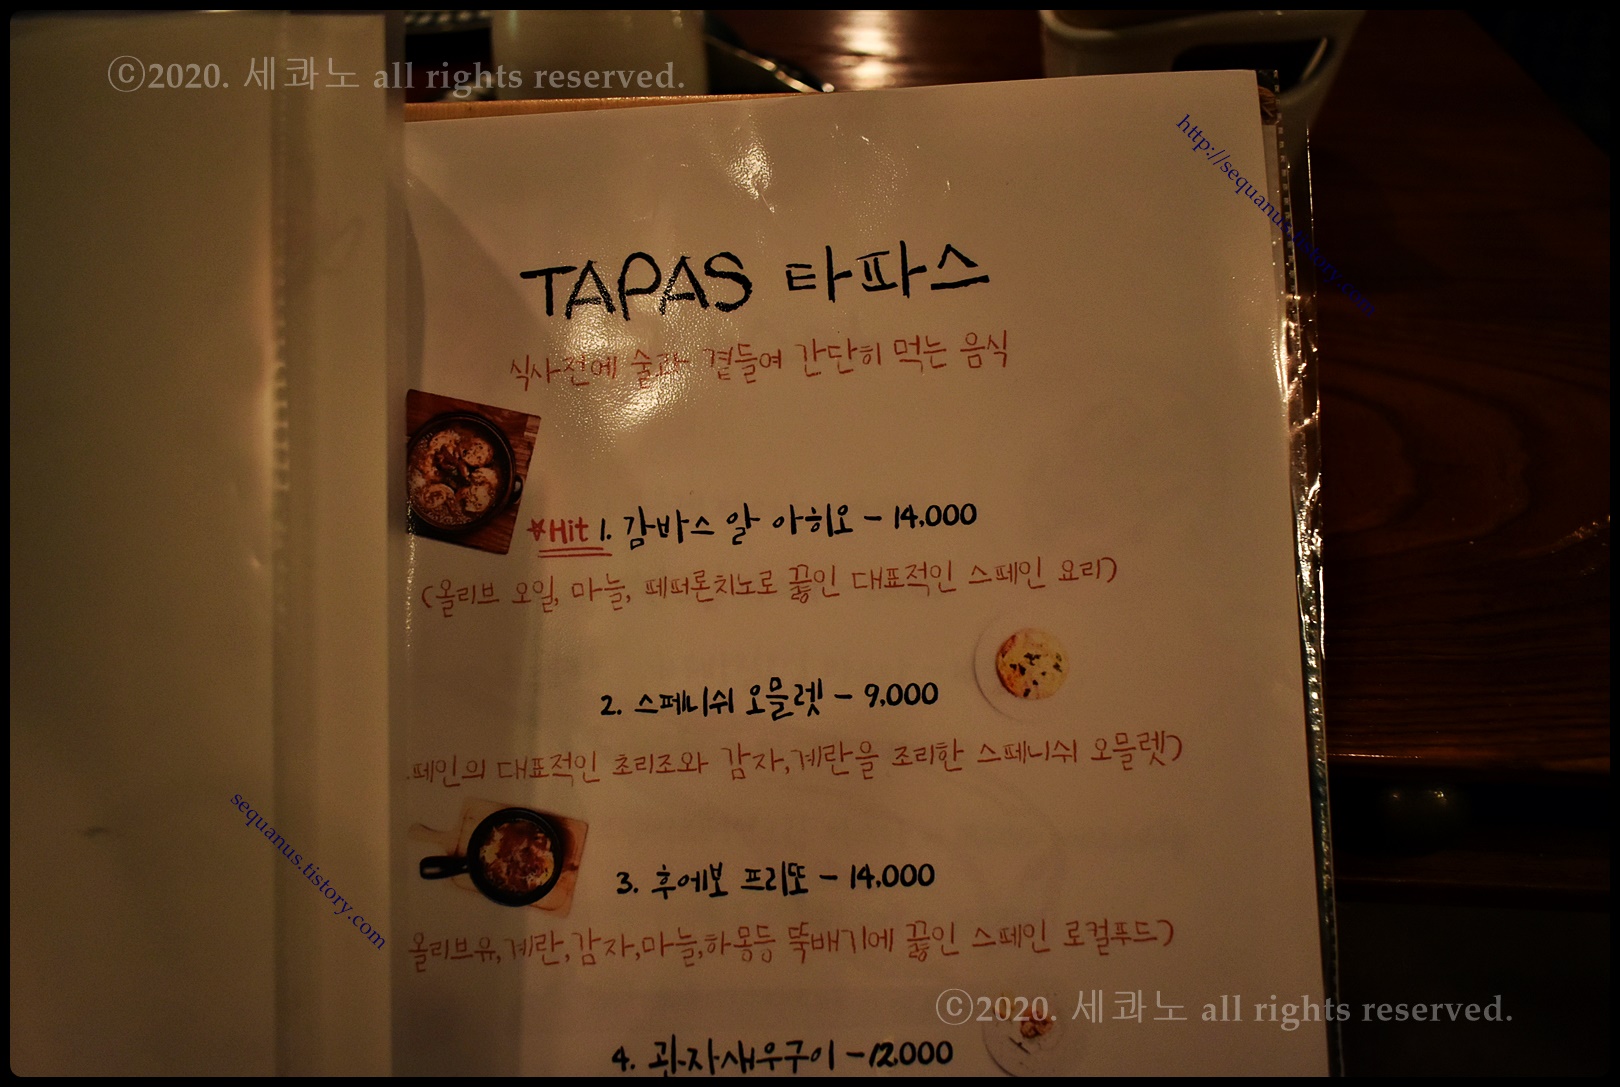 ⓒ2020. 세콰노 all rights reserved.
http://sequanus.tistory.com
TAPAS 타파스
식사전에 술과 곁들여 간단히 먹는 음식
★Hit 1. 감바스 알 아히오 - 14,000
(올리브 오일, 마늘, 페퍼론치노로 끓인 대표적인 스페인 요리)
2. 스페니쉬 오믈렛 - 9,000
페인의 대표적인 초리조와 감자,계란을 조리한 스페니쉬 오믈렛)
sequanus.tistory.com
3. 후에보 프리또 - 14,000
올리브유,계란,감자,마늘,하몽등 뚝배기에 끓인 스페인 로컬푸드)
ⓒ2020. 세콰노 all rights reserved.
4. 관자새우구이 - 12,000